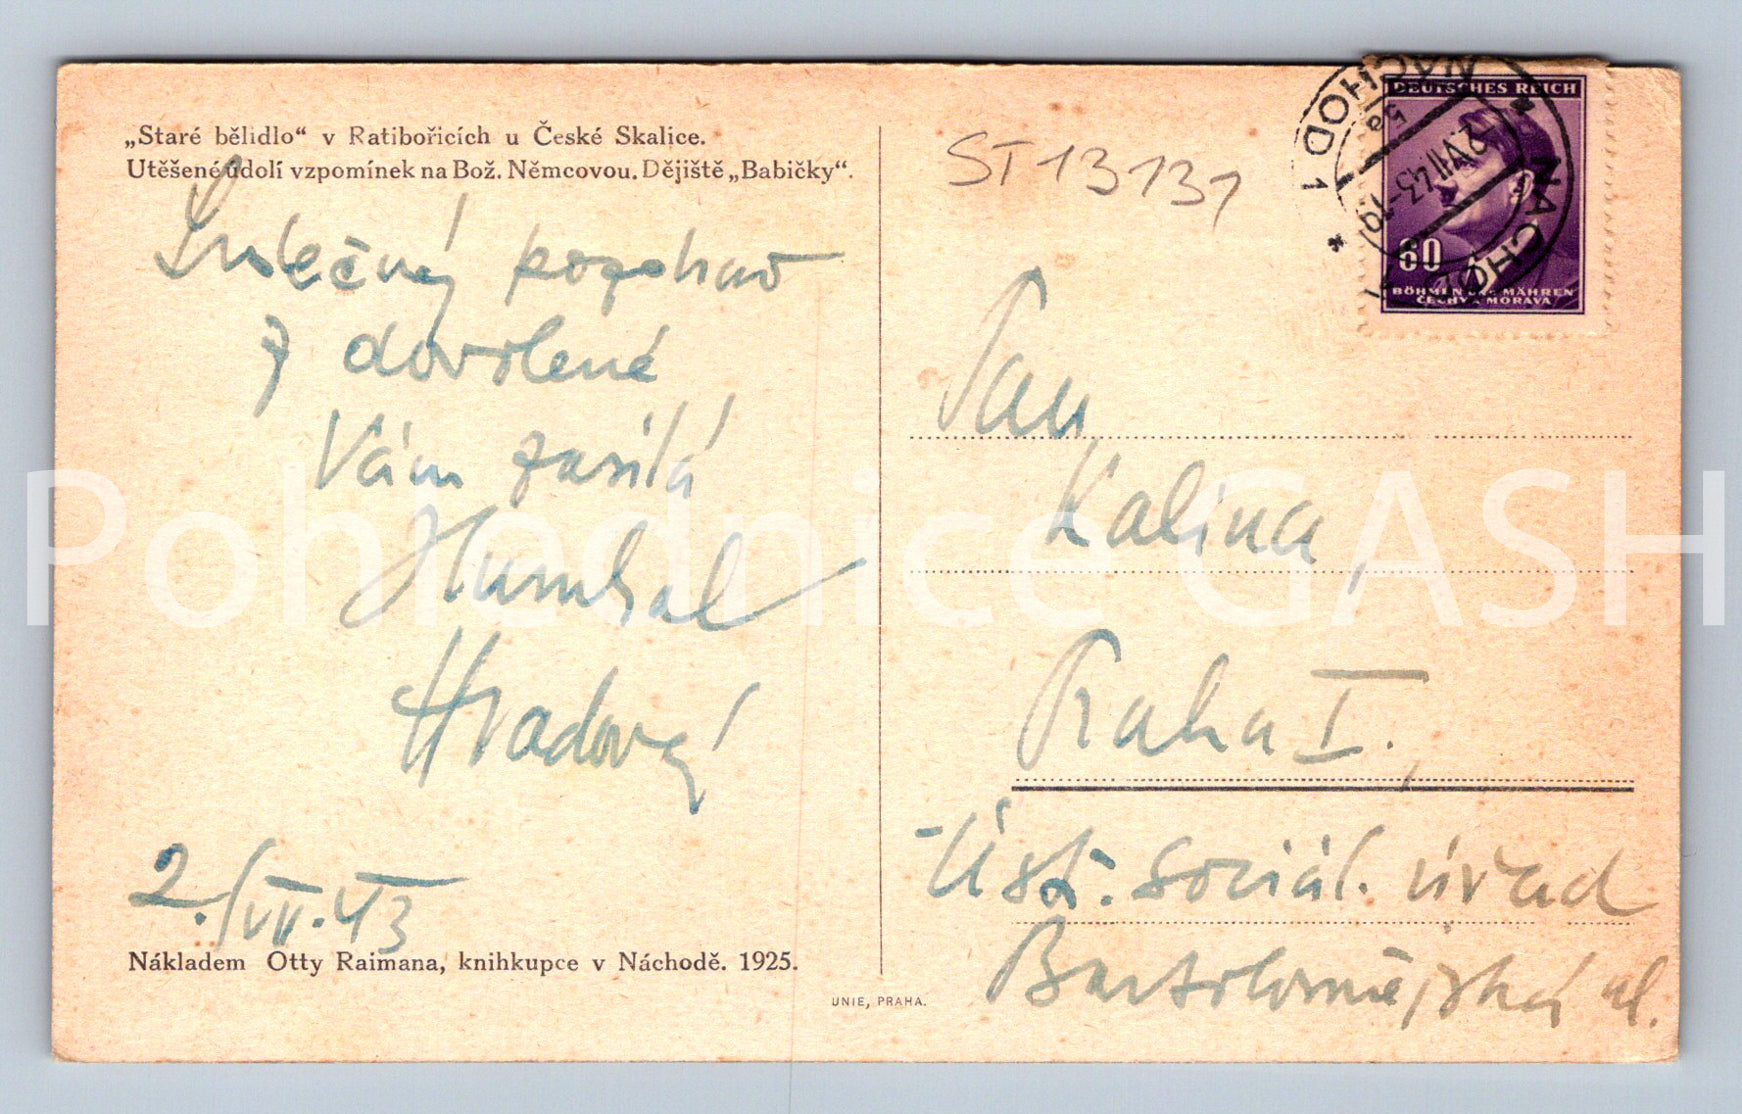 „Staré bělidlo“ v Ratibořicích u České Skalice.
Utěšené údolí vzpomínek na Bož. Němcovou. Dějiště „Babičky“.
Srdečný pozdrav
z dovolené
Vám zasílá
Hradový
2./VII.43
Nákladem Otty Raimana, knihkupce v Náchodě. 1925.
UNIE, PRAHA.
ST 13131
NÁCHOD 1
NÁCHOD 1
5a
-2.VII.43-19
DEUTSCHES REICH
60
BÖHMEN UND MÄHREN
ČECHY A MORAVA
Pan
Kalina,
Praha I.,
Úst. sociál. úřad
Bartolomějská ul.
Pohlednice GASH